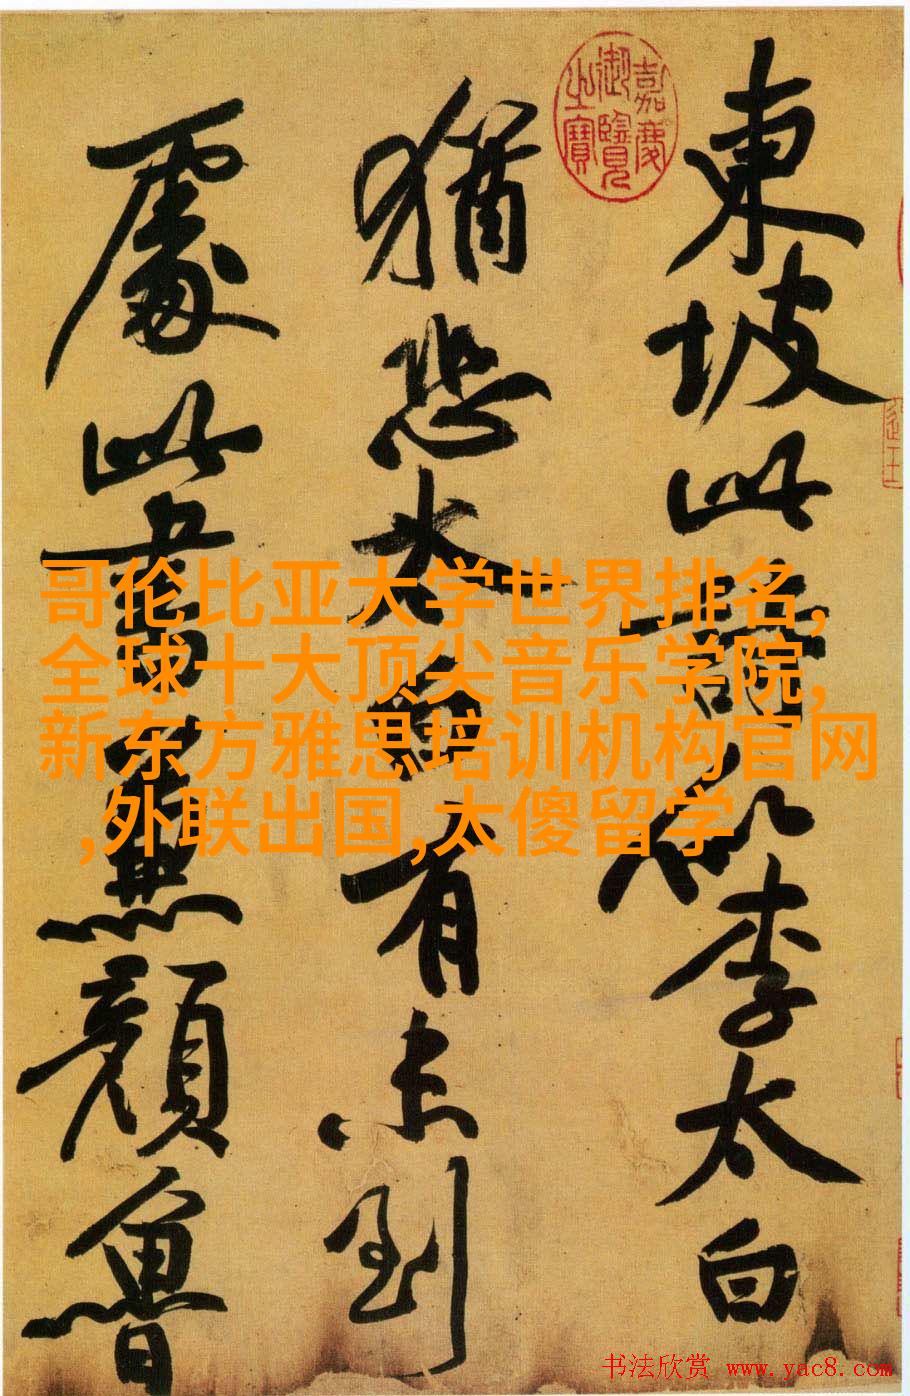 東坡此詩似李太白
猶恐太白有未到
處此書兼顏魯
嘉慶
御覽
之寶
哥伦比亚大学世界排名,
全球十大顶尖音乐学院,
新东方雅思培训机构官网
,外联出国,太傻留学
书法欣赏 www.yac8.com